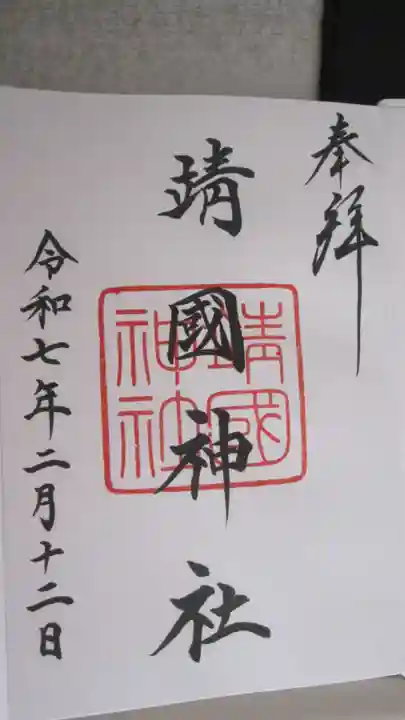 奉拜
靖國神社
靖國神社
令和七年二月十二日